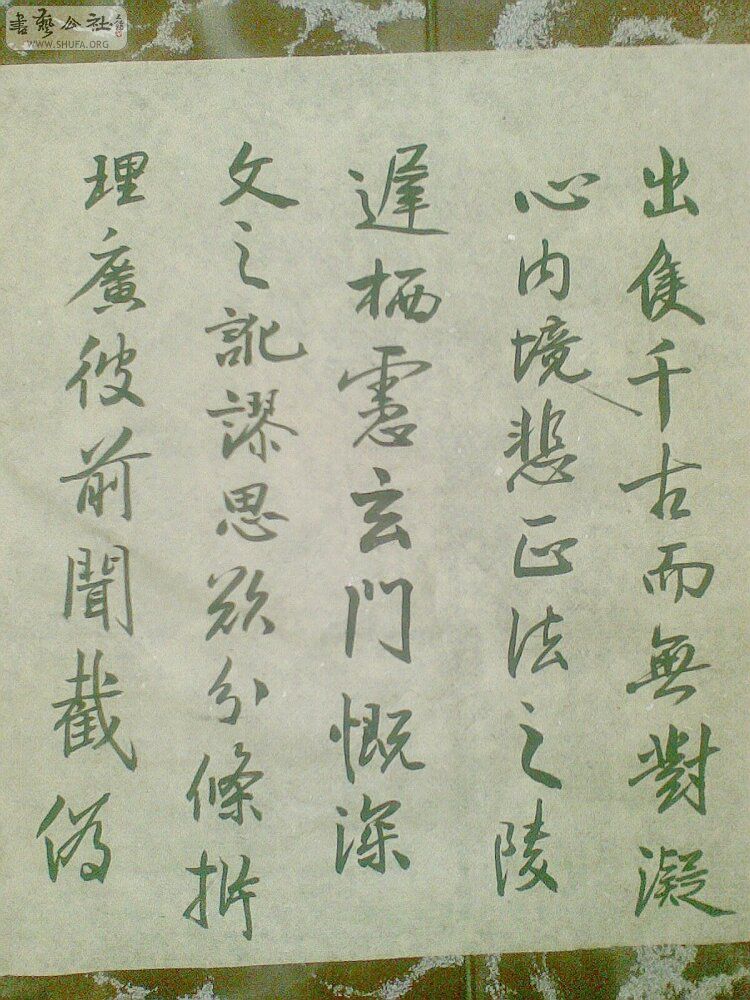 出隻千古而無對凝
心内境悲正法之陵
遲栖慮玄門慨深
文之訛謬思欲分條析
理廣彼前聞截偽
書藝公社
WWW.SHUFA.ORG